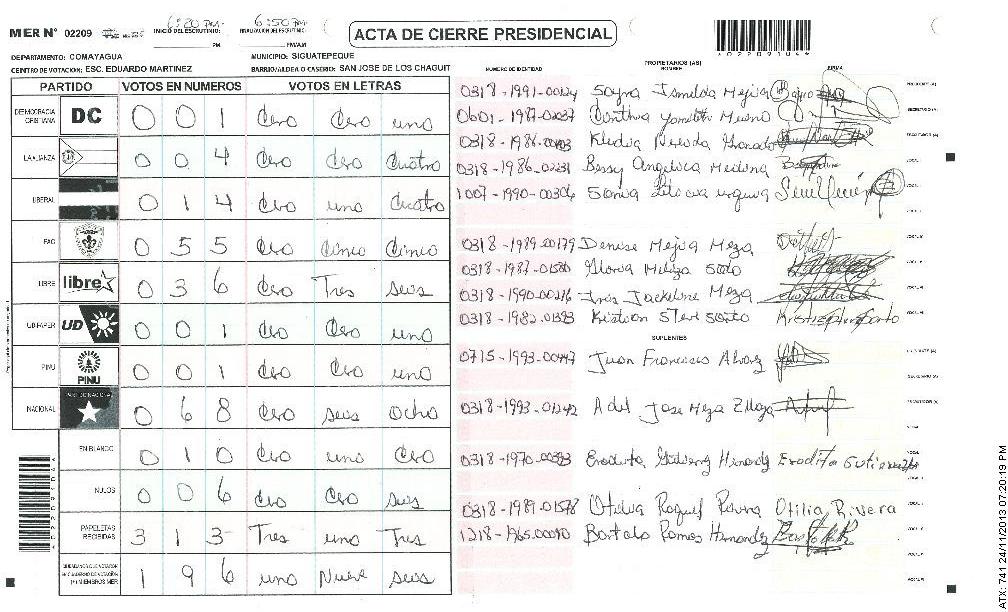 MER N° 02209
6:20 PM
INICIO DEL ESCRUTINIO: PM
6:50 PM
FINALIZACION DEL ESCRUTINIO: PM/AM
ACTA DE CIERRE PRESIDENCIAL
DEPARTAMENTO: COMAYAGUA
MUNICIPIO: SIGUATEPEQUE
CENTRO DE VOTACION: ESC. EDUARDO MARTINEZ
BARRIO/ALDEA O CASERIO: SAN JOSE DE LOS CHAGUIT
PARTIDO VOTOS EN NUMEROS VOTOS EN LETRAS
DEMOCRACIA CRISTIANA DC 0 0 1 Cero Cero uno
LA ALIANZA 0 0 4 Cero Cero Cuatro
LIBERAL 0 1 4 Cero uno Cuatro
FAO 0 5 5 Cero Cinco Cinco
LIBRE libre 0 3 6 Cero Tres seis
UD-FAPER UD 0 0 1 Cero Cero uno
PINU PINU 0 0 1 Cero Cero uno
NACIONAL PARTIDO NACIONAL 0 6 8 Cero seis Ocho
EN BLANCO 0 1 0 Cero uno Cero
NULOS 0 0 6 Cero Cero seis
PAPELETAS RECIBIDAS 3 1 3 Tres uno Tres
CIUDADANOS QUE VOTARON EN CUADERNO DE VOTACION (+) MIEMBROS MER 1 9 6 uno Nueve seis
NUMERO DE IDENTIDAD
PROPIETARIOS (AS)
NOMBRE
FIRMA
0318-1991-
0601-1987-
0318-1986-
0318-1986-02231 Bessy Angelica Medina
1007-1990-00306 Sonia
0318-1989-00179 Denise Mejia Meza
0318-1987-01580 Gloria Melissa Soto
0318-1990-00216 Iris Jackeline Meza
0318-1982-01393 Kristian Steve Sorto
SUPLENTES
0715-1993-00447 Juan Francisco
0318-1993-01242 Adil Jose Meza
0318-1970-00393 Erodita Gutierrez Hernandez Erodita Gutierrez
0318-1989-01578 Otilia Raquel Rivera Otilia Rivera
1218-1965-00090 Bartolo Ramos Hernandez
ATX: 741 24/11/2013 07:20:19 PM